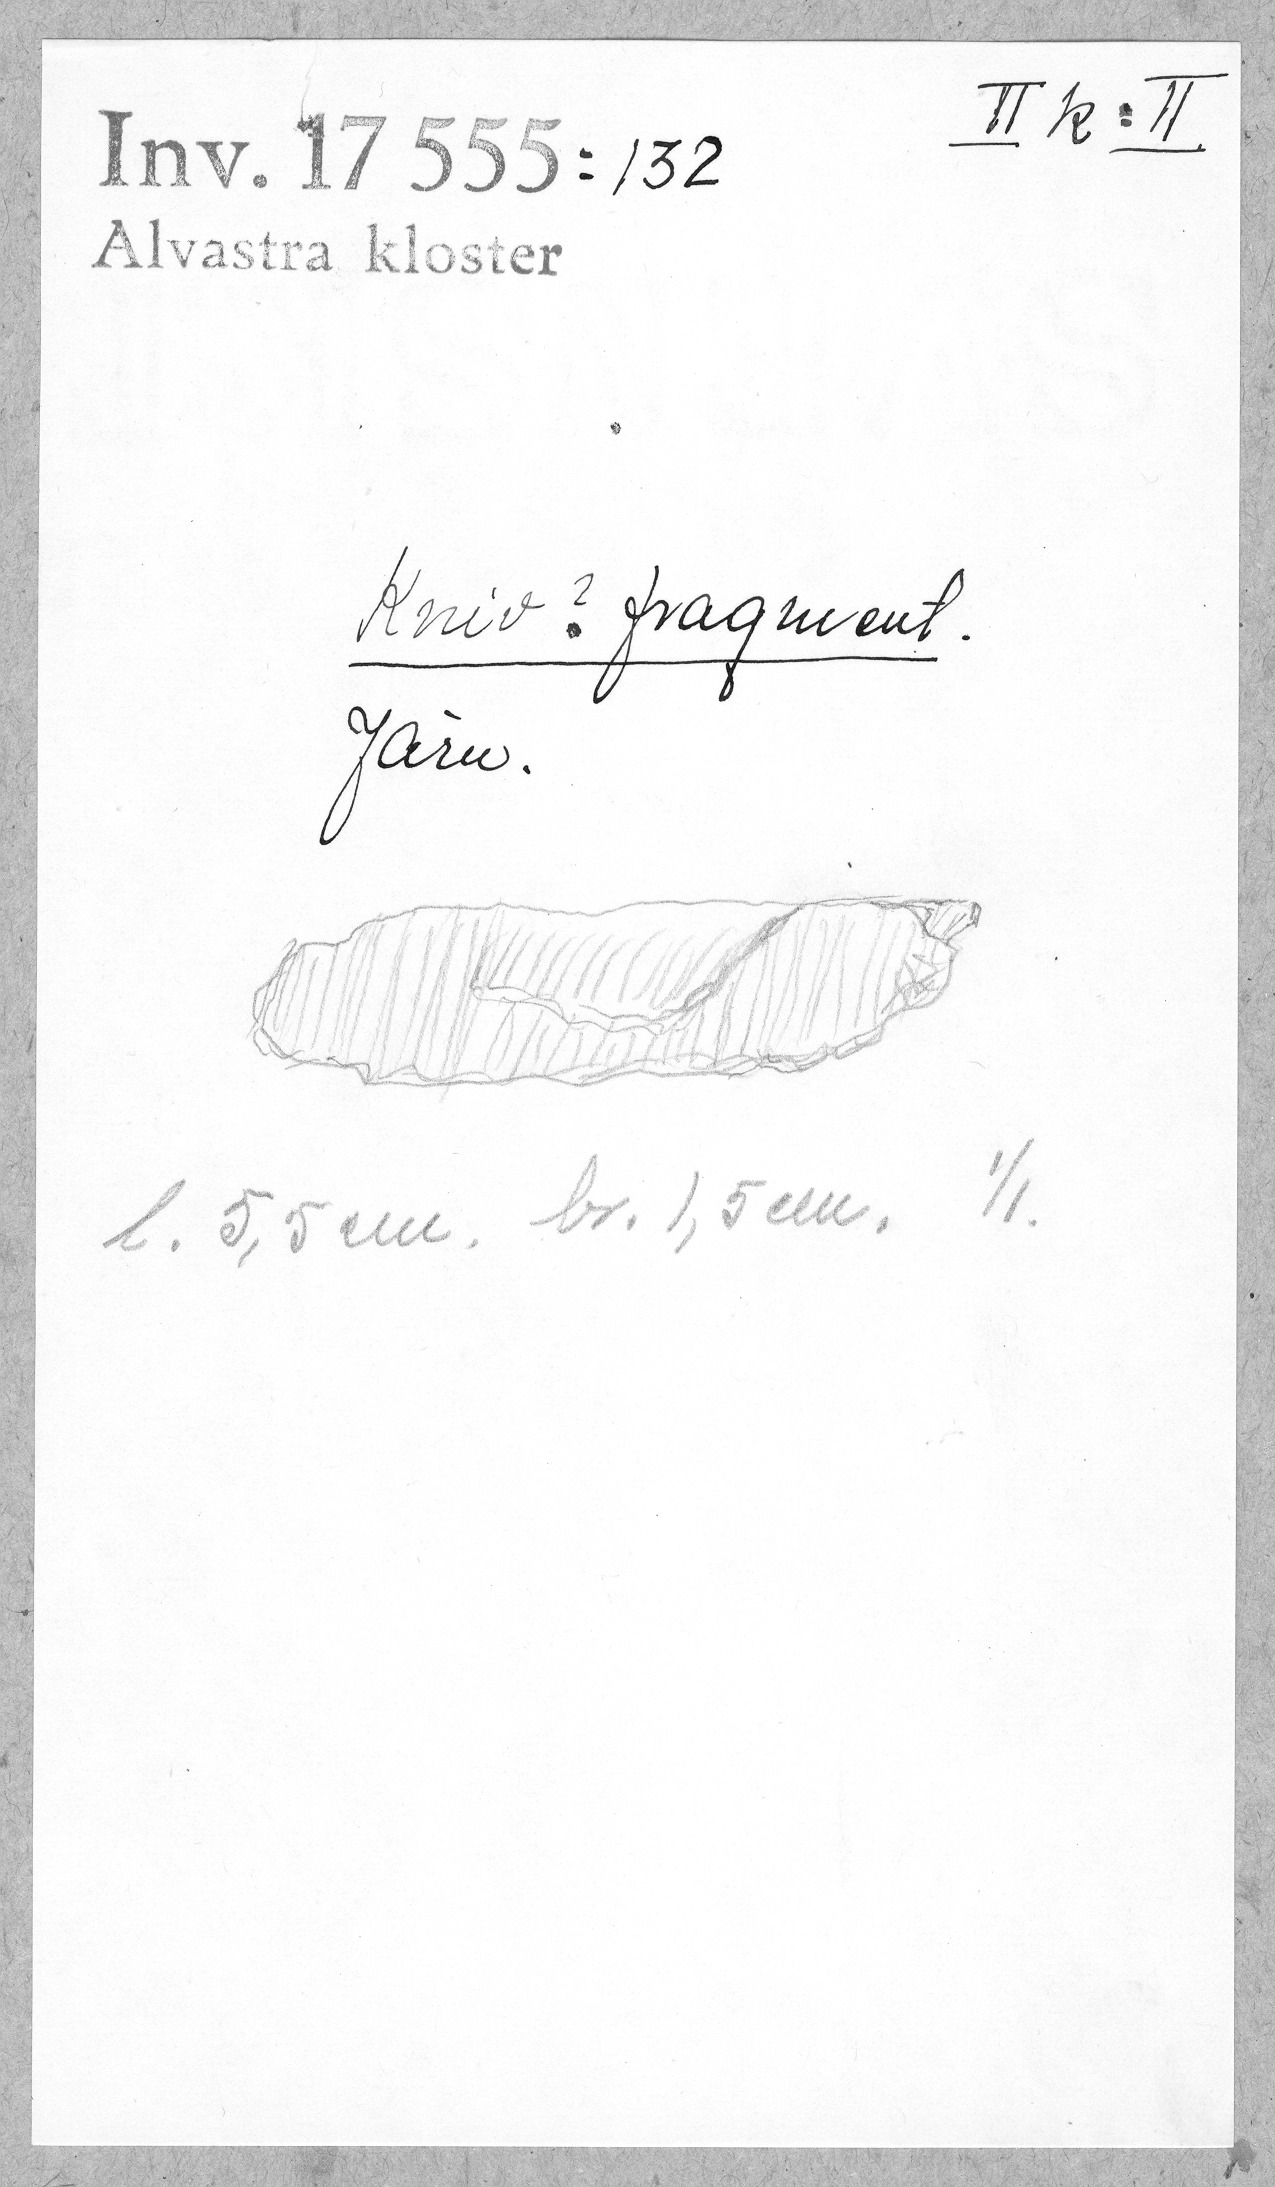 Inv. 17 555:132
II k:II
Alvastra kloster
Kniv? fragment.
Järn.
l. 5,5 cm. br. 1,5 cm. 1/1.